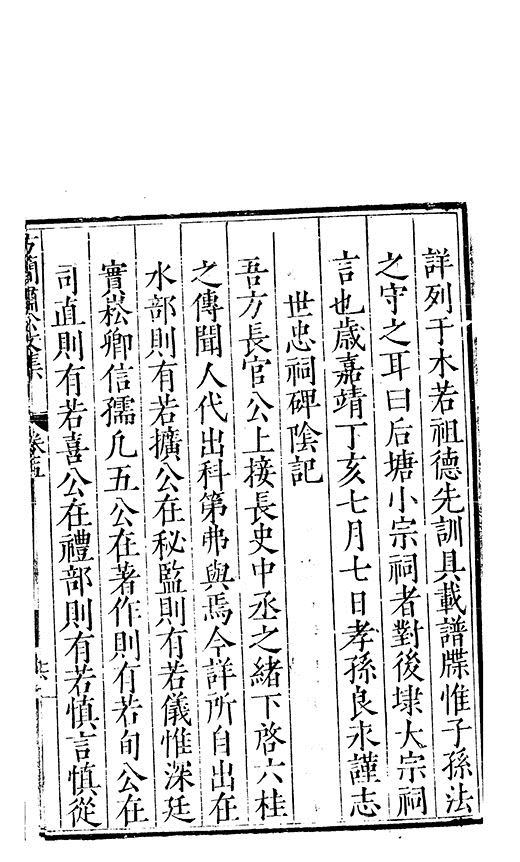 詳列于木若祖德先訓具載譜牒惟子孫法
之守之耳曰后塘小宗祠者對後埭大宗祠
言也歲嘉靖丁亥七月七日孝孫良永謹志
世忠祠碑陰記
吾方長官公上接長史中丞之緒下啓六桂
之傳聞人代出科第弗與焉今詳所自出在
水部則有若擴公在秘監則有若儀惟深廷
實崧卿信孺凡五公在著作則有若旬公在
司直則有若喜公在禮部則有若慎言慎從
方簡肅公文集
卷五